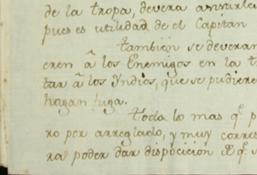 de la tropa, devera asistirle
pues es utilidad de el Capitan
tambien se deveran
cren â los Enemigos en la t
tar â los Yndios, que se pudiere
hagan fuga.
Toda lo mas qe p
ro por arreglado, y muy corres
ra poder dar disposicion â qe s